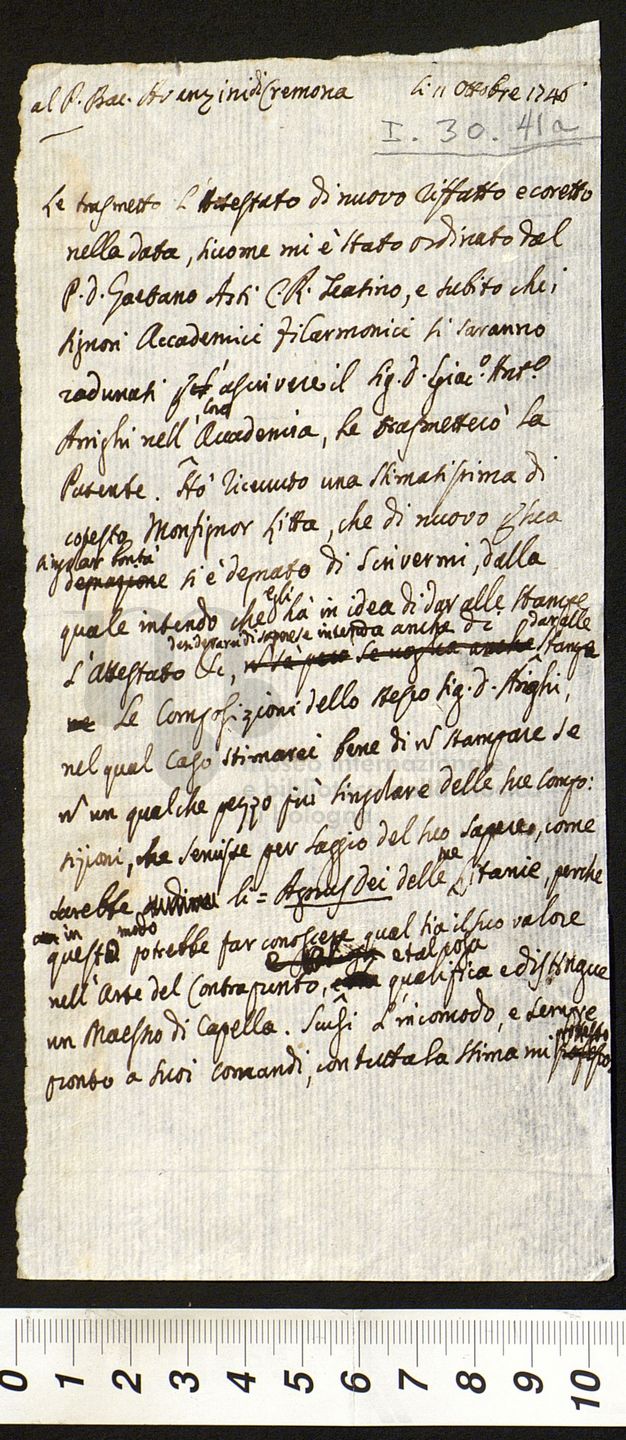 al P. Bac. Avanzini di Cremona li 11 Ottobre 1746
I. 30. 41a
Le trasmetto l'Attestato di nuovo riffatto e coretto
nella data, sicome mi è stato ordinato dal
P. D. Gaetano Asti C. R. Teatino, e subito che i
Signori Accademici Filarmonici si saranno
radunati per ascrivere il Sig. D. Giac.º Ant.º
Arrighi nell' loro Accademia, Le trasmetterò la
Patente. Hò ricevuto una stimatissima di
cotesto Monsignor Litta, che di nuovo p sua
singolar bontà
degnazione si è degnato di scrivermi, dalla
quale intendo che egli hà in idea di dar alle stampe
desiderarei di sapere se intenda anche di dar alle
l'Attestato &c, se voglia anche Stampe
Le Composizioni dello stesso Sig. D. Arrighi,
nel qual caso stimarei bene di ñ stampare se
ñ un qualche pezzo più singolare delle sue compo:
sizioni, che servisse per saggio del suo sapere, come
sarebbe li = Agnus Dei delle Litanie, perche
in questo modo potrebbe far conoscere qual sia il suo valore
nell'Arte del Contrapunto, e tal cosa qualifica e distingue
un Maestro di Capella. Scusi l'incomodo, e sempre
pronto a suoi comandi, con tutta la stima mi protesto
museo internazionale
e biblioteca della
bologna
0 1 2 3 4 5 6 7 8 9 10